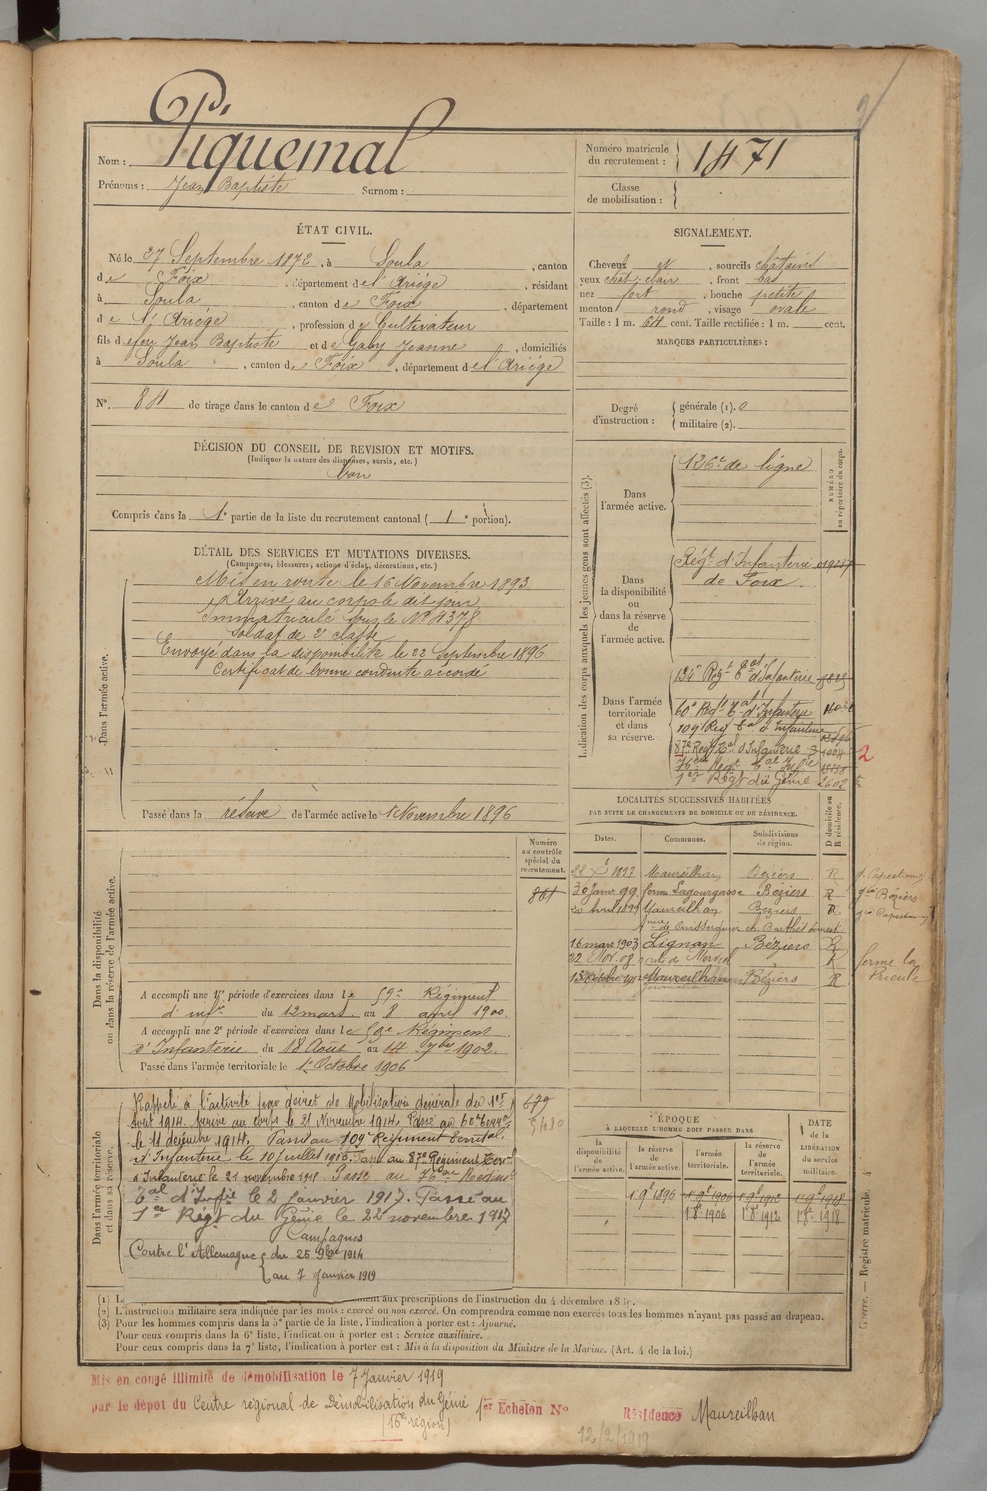 Nom : Piquemal
Prénoms : Jean Baptiste Surnom :
Numéro matricule du recrutement : 1471
Classe de mobilisation :
ÉTAT CIVIL.
Né le 27 Septembre 1872, à Soula, canton
de Foix, département de l'Ariège, résidant
à Soula, canton de Foix, département
de l'Ariège, profession de Cultivateur
fils de feu Jean Baptiste et de Gaby Jeanne, domiciliés
à Soula, canton de Foix, département de l'Ariège
N° 84 de tirage dans le canton de Foix
DÉCISION DU CONSEIL DE REVISION ET MOTIFS.
(Indiquer la nature des dispenses, sursis, etc.)
bon
Compris dans la 1e partie de la liste du recrutement cantonal (1e portion).
SIGNALEMENT.
Cheveux et, sourcils châtains
yeux chât. clair, front bas
nez fort, bouche petite
menton rond, visage ovale
Taille : 1 m. 64 cent. Taille rectifiée : 1 m. cent.
MARQUES PARTICULIÈRES :
Degré d'instruction : générale (1). 0
militaire (2).
DÉTAIL DES SERVICES ET MUTATIONS DIVERSES.
(Campagnes, blessures, actions d'éclat, décorations, etc.)
Dans l'armée active.
Mis en route le 16 Novembre 1893
Arrivé au corps le dit jour
Immatriculé sous le N° 4378
Soldat de 2e classe
Envoyé dans la disponibilité le 22 Septembre 1896
Certificat de bonne conduite accordé
Passé dans la réserve de l'armée active le 1 Novembre 1896
Indication des corps auxquels les jeunes gens sont affectés (3).
NUMÉRO au répertoire du corps.
Dans l'armée active.
126e de ligne
Dans la disponibilité ou dans la réserve de l'armée active.
Régt d'Infanterie
de Foix.
Dans l'armée territoriale et dans sa réserve.
134e Régt tal d'Infanterie
60e Régt tal d'Infanterie
109e Reg tal d'Infanterie
87e Regt tal d'Infanterie
76ème Régt tal Infie
1er Régt du Génie 2602
2
LOCALITÉS SUCCESSIVES HABITÉES
PAR SUITE DE CHANGEMENTS DE DOMICILE OU DE RÉSIDENCE.
Dates. Communes. Subdivisions de région. D domicile ou R résidence.
1897 Maureilhan Béziers R
30 Janv. 99 ferme Lagourgasse Béziers R gie Béziers
20 Avril 1899 Maureilhan Béziers R
16 mars 1903 Lignan Béziers R
22 Nov. 09 R ferme la
Maureilhan Béziers R
Dans la disponibilité ou dans la réserve de l'armée active.
Numéro au contrôle spécial du recrutement.
861
A accompli une 1re période d'exercices dans le 59e Régiment
d'infie du 12 mars au 8 avril 1900.
A accompli une 2e période d'exercices dans le 59e Régiment
d'Infanterie du 18 Août au 14 7bre 1902.
Passé dans l'armée territoriale le 1er Octobre 1906
Dans l'armée territoriale et dans sa réserve.
Rappelé à l'activité par décret de Mobilisation générale du 1er
Août 1914. Arrivé au corps le 21 Novembre 1914. Passé au 60e
le 11 décembre 1914. Passé au 109e Régiment Territal
d'Infanterie le 10 juillet 1915. Passé au 87e Régiment Terrl
d'Infanterie le 21 novembre 1915 Passé au 76ème Régiment
tal d'Infie le 2 janvier 1917. Passé au
1er Régt du Génie le 22 novembre 1917
Campagnes
Contre l'Allemagne du 25 9bre 1914
au 7 Janvier 1919
679
ÉPOQUE
À LAQUELLE L'HOMME DOIT PASSER DANS
la disponibilité de l'armée active. la réserve de l'armée active. l'armée territoriale. la réserve de l'armée territoriale. DATE de la LIBÉRATION du service militaire.
1 9e 1896 1 9e 1906 1 9e 1912 1 9e 1918
1 8e 1906 1 8e 1912 1 8e 1918
aux prescriptions de l'instruction du 4 décembre
(2) L'instruction militaire sera indiquée par les mots : exercé ou non exercé. On comprendra comme non exercés tous les hommes n'ayant pas passé au drapeau.
(3) Pour les hommes compris dans la 5e partie de la liste, l'indication à porter est : Ajourné.
Pour ceux compris dans la 6e liste, l'indication à porter est : Service auxiliaire.
Pour ceux compris dans la 7e liste, l'indication à porter est : Mis à la disposition du Ministre de la Marine. (Art. 4 de la loi.)
Guerre. — Registre matricule.
Mis en congé illimité de démobilisation le 7 Janvier 1919
par le dépôt du Centre régional de Démobilisation du Génie 1er Echelon N°
(16e région)
Résidence Maureilhan
12/2/1919